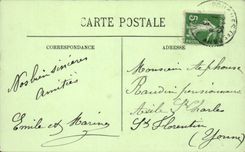 CARTE POSTALE
CORRESPONDANCE
ADRESSE
Nos bien sincères
Amitiés
Emile et Marine
Monsieur
Baudin pensionnaire
Asile St Charles
St Florentin
(Yonne)
5